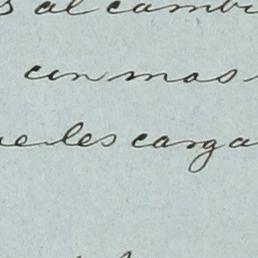 s al cambi
con mas
ue les carga